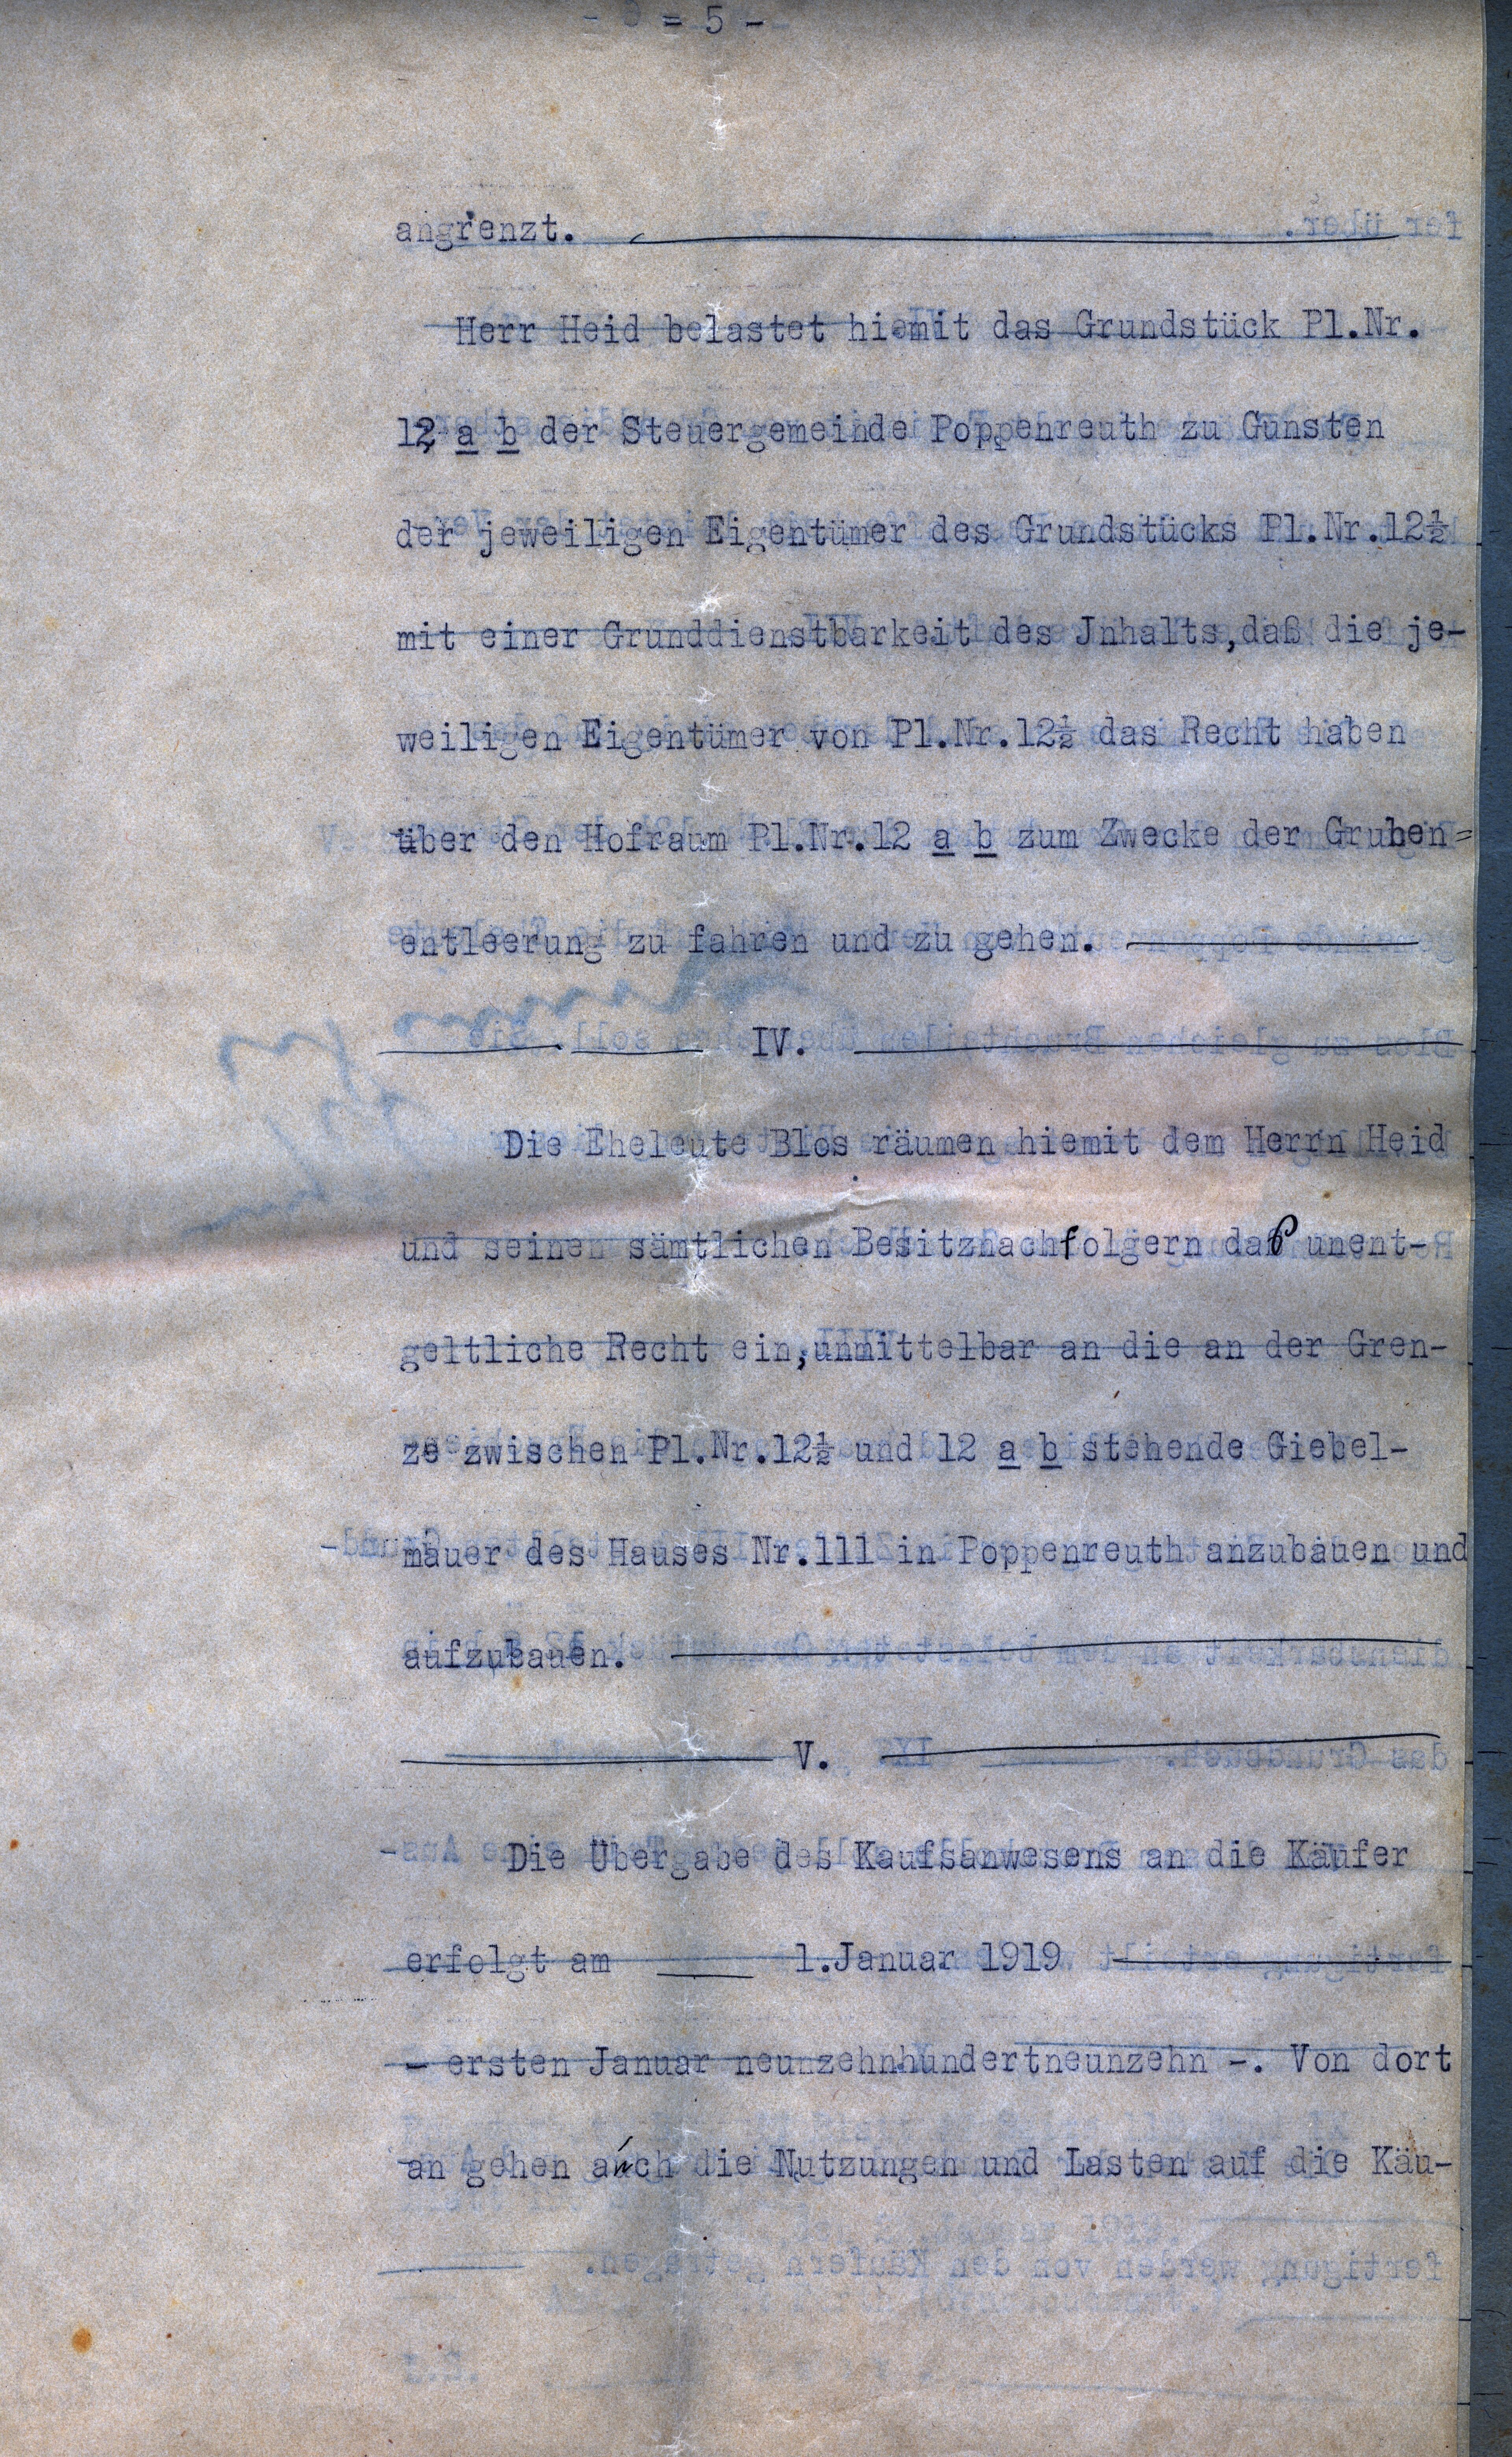 = 5 -
angrenzt.
Herr Heid belastet hiemit das Grundstück Pl.Nr.
12 a b der Steuergemeinde Poppenreuth zu Gunsten
der jeweiligen Eigentümer des Grundstücks Pl.Nr.12½
mit einer Grunddienstbarkeit des Jnhalts,daß die je-
weiligen Eigentümer von Pl.Nr.12½ das Recht haben
über den Hofraum Pl.Nr.12 a b zum Zwecke der Gruben=
entleerung zu fahren und zu gehen.
IV.
Die Eheleute Blos räumen hiemit dem Herrn Heid
und seinen sämtlichen Besitznachfolgern daß unent-
geltliche Recht ein,unmittelbar an die an der Gren-
ze zwischen Pl.Nr.12½ und 12 a b stehende Giebel-
mauer des Hauses Nr.111 in Poppenreuth anzubauen und
aufzubauen.
V.
Die Übergabe des Kaufsanwesens an die Käufer
erfolgt am 1.Januar 1919
- ersten Januar neunzehnhundertneunzehn -. Von dort
an gehen auch die Nutzungen und Lasten auf die Käu-